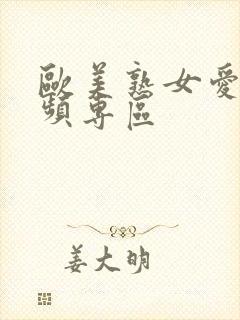 歐美熟女愛
頻專區
姜大明